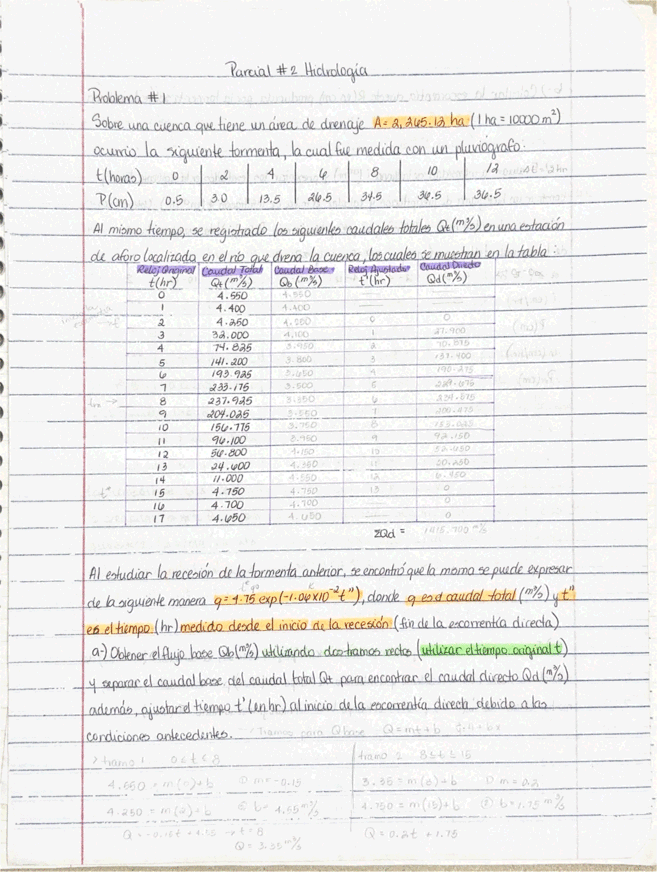 Parcial #2 Hidrología
Problema #1
Sobre una cuenca que tiene un área de drenaje A=2,365.12 ha (1 ha = 10000 m²)
ocurrio la siguiente tormenta, la cual fue medida con un pluviógrafo.
t(horas) 0 2 4 6 8 10 12
P(cm) 0.5 3.0 13.5 26.5 34.5 36.5 36.5
Al mismo tiempo, se registrado los siguientes caudales totales Qt(m³/s) en una estación
de aforo localizada en el río que drena la cuenca, los cuales se muestran en la tabla:
Reloj Original Caudal Total Caudal Base Reloj Ajustado Caudal Directo
t(hr) Qt(m³/s) Qb(m³/s) t'(hr) Qd(m³/s)
0 4.550 4.550
1 4.400 4.400
2 4.250 4.250 0 0
3 32.000 4.100 1 27.900
4 74.825 3.950 2 70.875
5 141.200 3.800 3 137.400
6 193.925 3.650 4 190.275
7 233.175 3.500 5 229.675
8 237.925 3.350 6 234.575
9 204.025 3.550 7 200.475
10 156.775 3.750 8 153.025
11 96.100 3.950 9 92.150
12 56.800 4.150 10 52.650
13 24.600 4.350 11 20.250
14 11.000 4.550 12 6.450
15 4.750 4.750 13 0
16 4.700 4.700 0
17 4.650 4.650 0
ΣQd = 1415.700 m³/s
Al estudiar la recesión de la tormenta anterior, se encontró que la misma se puede expresar
de la siguiente manera q=4.75 exp(-1.06x10⁻² t"), donde q es el caudal total (m³/s) y t"
es el tiempo (hr) medido desde el inicio de la recesión (fin de la escorrentía directa)
a-) Obtener el flujo base Qb(m³/s) utilizando dos tramos rectos (utilizar el tiempo original t)
y separar el caudal base del caudal total Qt para encontrar el caudal directo Qd(m³/s)
además, ajustar el tiempo t' (en hr) al inicio de la escorrentía directa debido a las
condiciones antecedentes. > Tramos para Qbase Q=mt+b
> tramo 1 0≤t≤8 tramo 2 8≤t≤15
4.550 = m(0)+b ① m=-0.15 3.35 = m(8)+b ① m=0.2
4.250 = m(2)+b ② b=4.55 m³/s 4.750 = m(15)+b ② b=1.75 m³/s
Q=-0.15t+4.55 → t=8 Q=0.2t+1.75
Q=3.35 m³/s